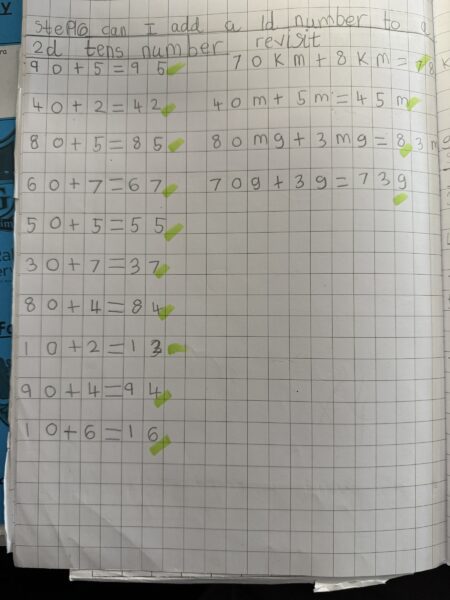 step16 can I add a 1d number to a
2d tens number revisit
90+5=95
40+2=42
80+5=85
60+7=67
50+5=55
30+7=37
80+4=84
10+2=13
90+4=94
10+6=16
70km+8km=78k
40m+5m=45m
80mg+3mg=83mg
70g+3g=73g